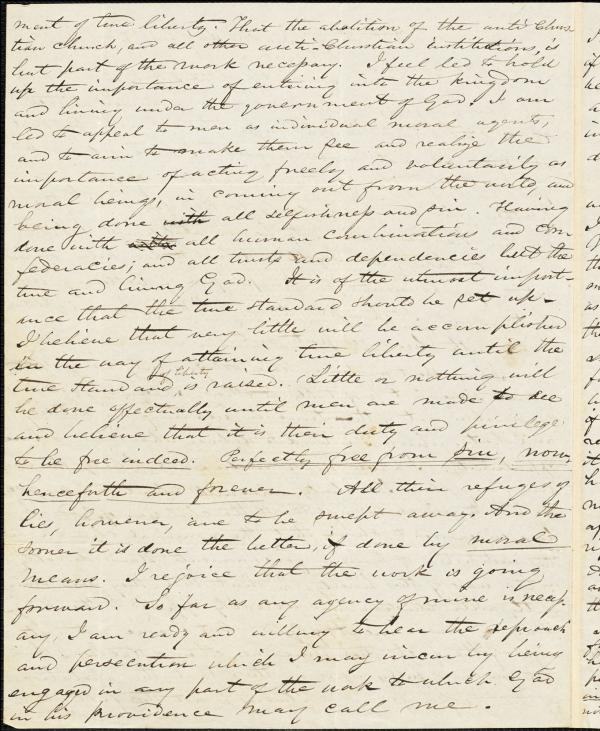 ment of true liberty. That the abolition of the anti-Chris
tian church, and all other anti-Christian institutions, is
but part of the work necessary. I feel led to hold
up the importance of entering into the kingdom
and living under the government of God. I am
led to appeal to men as individual moral agents,
and to aim to make them see and realize the
importance of acting freely and voluntarily as
moral beings, in coming out from the world, and
being done with all selfishness and sin. Having
done with all human combinations and con
federacies, and all trusts and dependencies but the
true and living God. It is of the utmost import-
ance that the true standard should be set up.
I believe that very little will be accomplished
in the way of attaining true liberty until the
of liberty
true standard is raised. Little or nothing will
be done effectually until men are made to see
and believe that it is their duty and privilege
to be free indeed. Perfectly free from sin, now,
henceforth and forever. All their refuges of
lies, however, are to be swept away. And the
sooner it is done the better, if done by moral
means. I rejoice that the work is going
forward. So far as any agency of mine is necess-
ary, I am ready and willing to bear the reproach
and persecution which I may incur by being
engaged in any part of the work to which God
in his providence may call me.